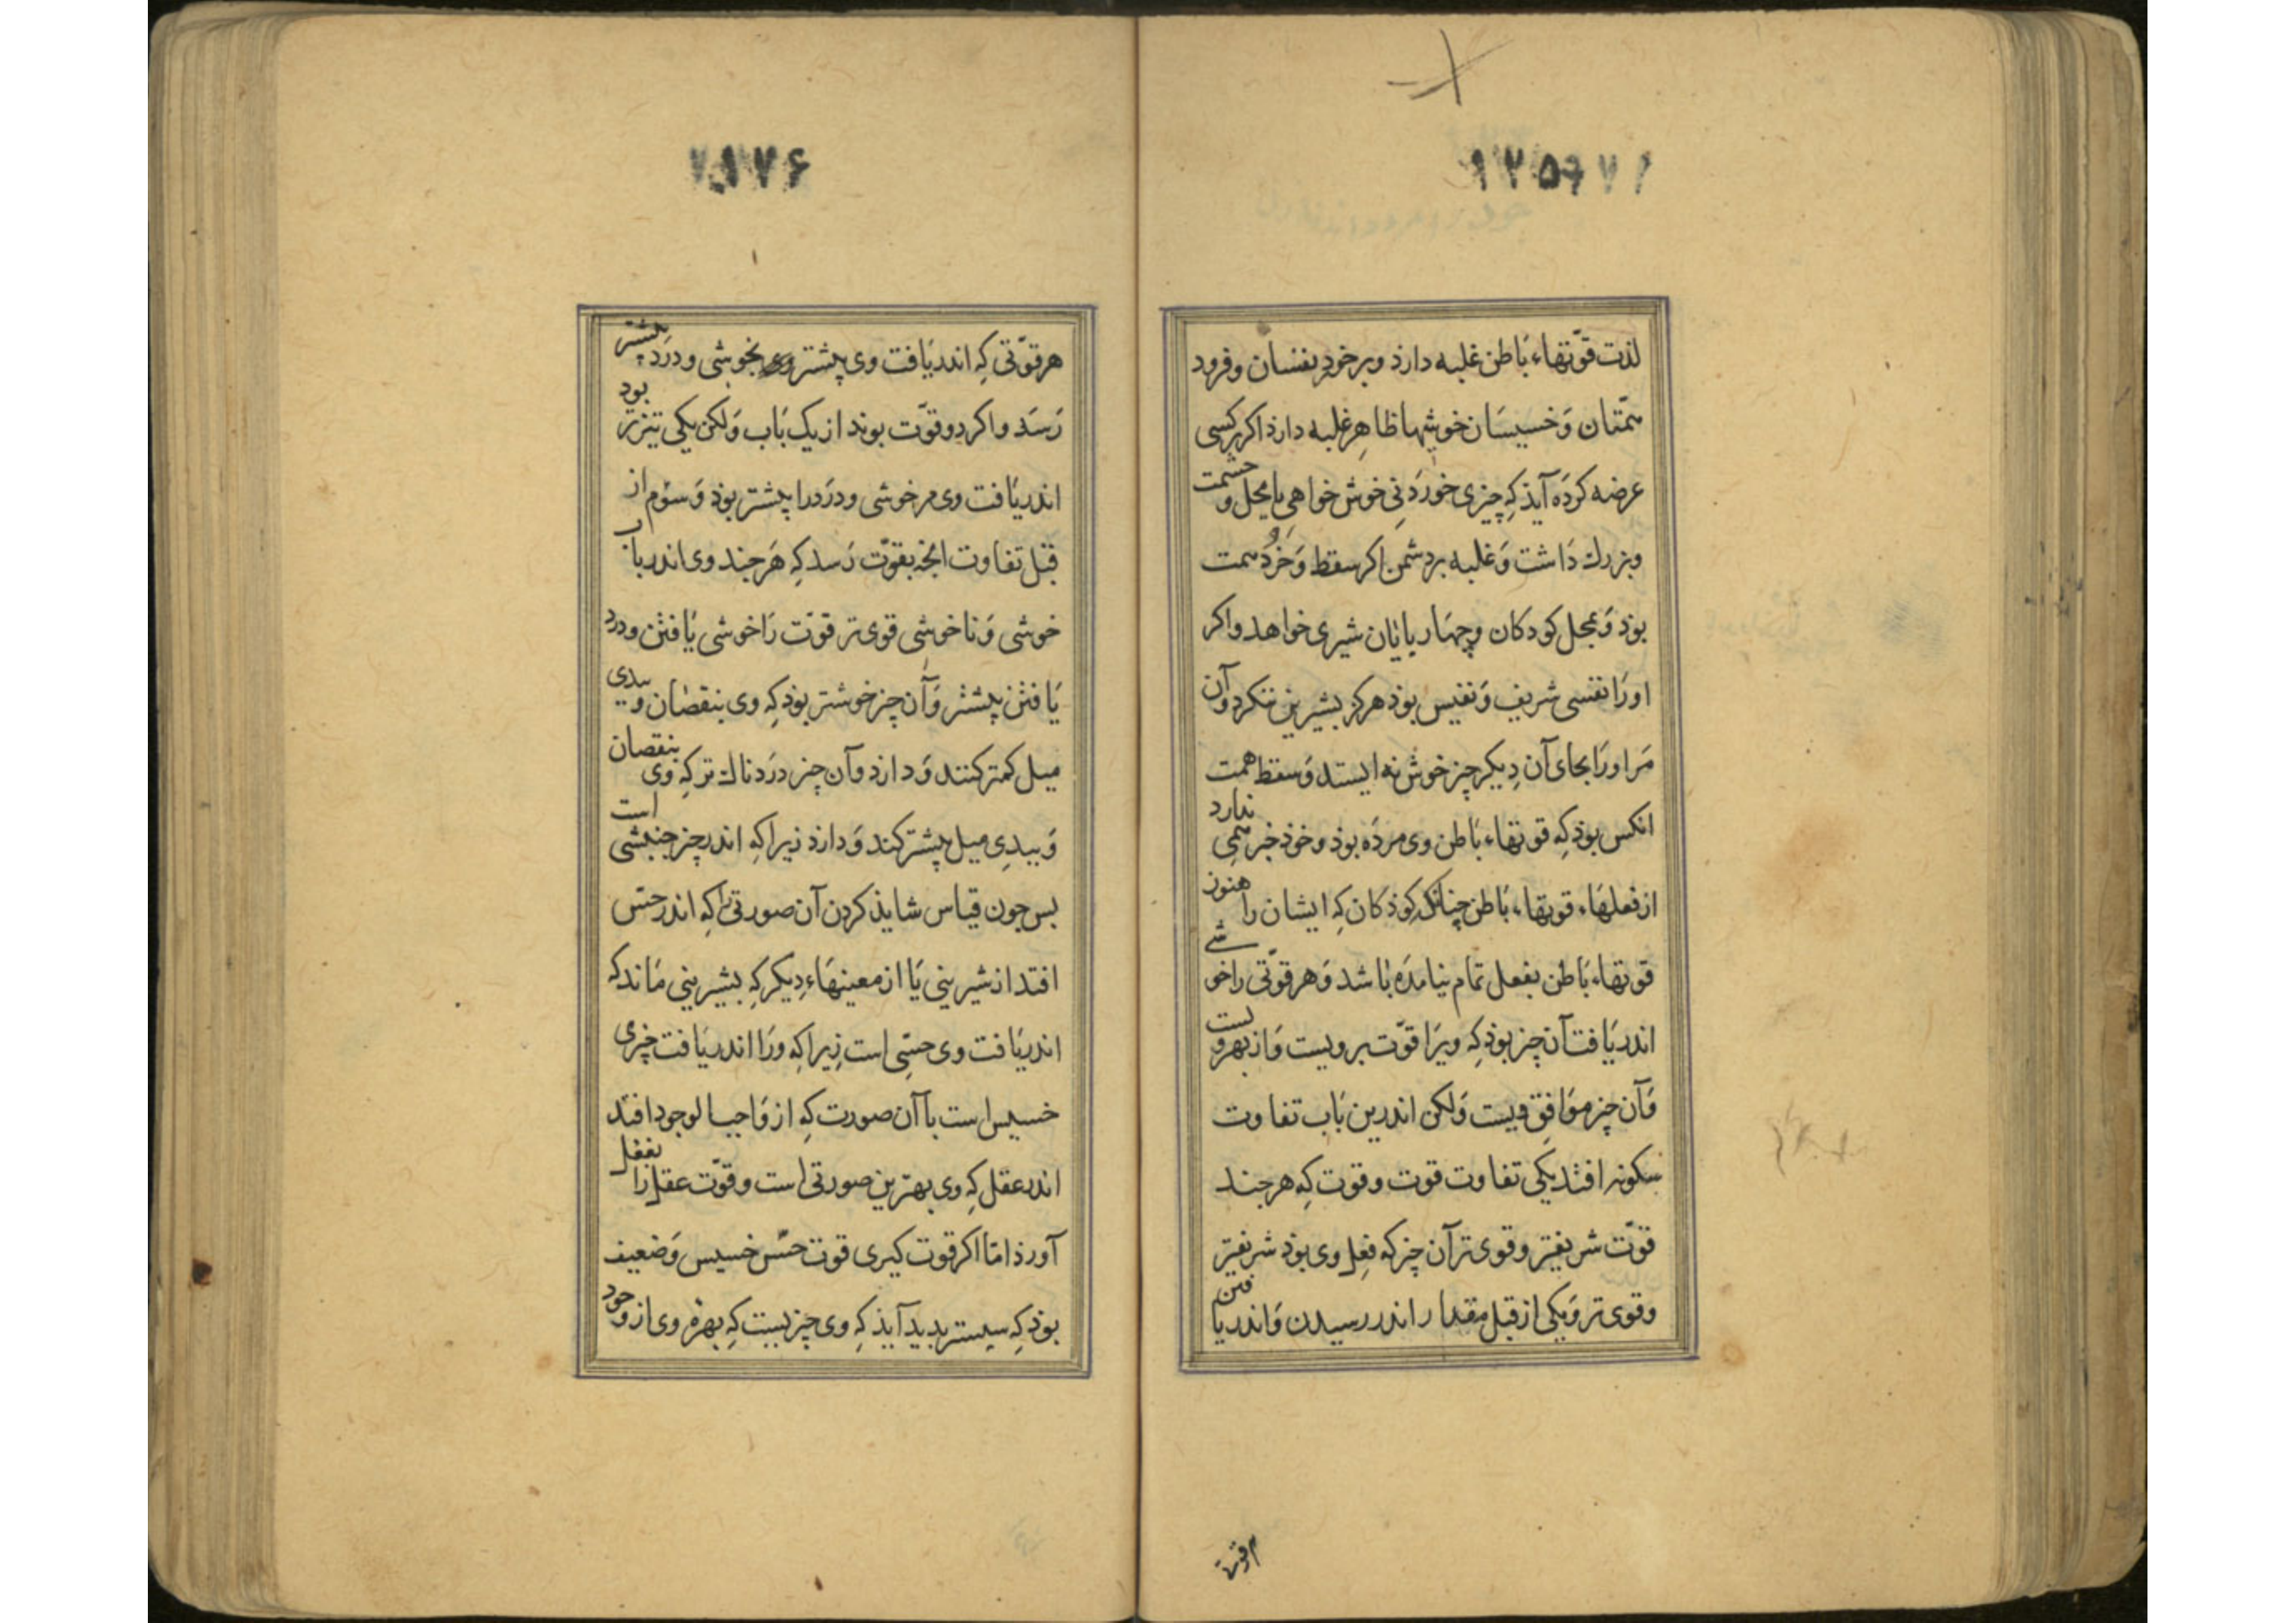 ۱۲۵
لذت قوّتهاء بَاطن غلبه دارذ و بر خودبنفسان و فرود
همّتان وَ خسیسَان خوشیها ظاهِر غلبه دارذ اکر بر کسی
عرضه کرَده آیذ کِه چیزی خورَدنِی خوش خواهی یا محل و حشمت
و بزرك دَاشت وَ غلبه بر دشمن اکر سقط وَ خُرد همت
بوَد وَ بمحل کودکان و چهَار پایَان شیری خواهد و اکر
او رَا نفسی شریف وَ نفیس بوَد هرکز بشیرینی ننکرد و آن
مَر او رَا بجای آن دِیکر چیز خوش نه ایستد وَ سقط همت
انکس بوذ کِه قوتهاء بَاطن وی مرده بوذ و خوذ خبر همی ندارد
از فعلهَاء قوتهاء بَاطن چنانکِ کوذکان کِه ایشان را هنوز
قوتهاء بَاطن بفعل تمام نیامَدَه بَاشد وَ هر قوّتی را خوشی
اندر یَافت آن چیز بوَد کِه ویرَا قوّت بر ویست وَ از بهر ویست
وَ آن چیز موَافِق ویست وَلکن اندرین بَاب تفاوت
سکونه افتد یکی تفاوت قوت و قوت کِه هر چند
قوّت شریفتر و قوی تر آن چیز که فعِل وی بوذ شریفتر
و قوی تر وَ یکی از قبل مقدار اندر رسیدن وَ اندر یافتن
۱۷۶
هر قوّتی کِه اندر یَافت وی بیشتر وی بخوشی و درَد بیشتر
رَسَد و اکر دو قوّت بوند از یک بَاب وَلکن یکی تیزتر بود
اندر یَافت وی مر خوشی و درَد را بیشتر بوذ وَ سوّم از
قبَل تفاوت انچه بقوّت رَسد کِه هَر چند وی اندر باب
خوشی وَ ناخوشی قوی تر قوّت رَا خوشی یَافتن و درد
یَافتن بیشتر وَ آن چیز خوشتر بوَد کِه وی بنقصَان و بدی
میل کمتر کنند وَ دارذ و آن چیز درَدناك تر کِه وی بنقصان
وَ ببدِی میل بیشتر کند وَ دارذ زیرا کِه اندر چیز جنبشی است
بس چون قیاس شایذ کردن آن صورتی رَا کِه اندر حسّ
افتد از شیرینی یَا از معینهَاء دِیکر کِه بشیرینی مَاند که
اندر یَافت وی حسّی است زِیرا کِه ورَا اندر یَافت چیزی
خسیس است با آن صورت کِه از وَاجب الوجود افتد
اندر عقل کِه وی بهترین صورتی است و قوّت عقل را بفعل
آورذ امّا اکر قوت کیری قوت حسّ خسیس وَ ضعیف
بوذ کِه سیستر بدید آیذ کِه وی چیزیست کِه بهرهٔ وی از وجود